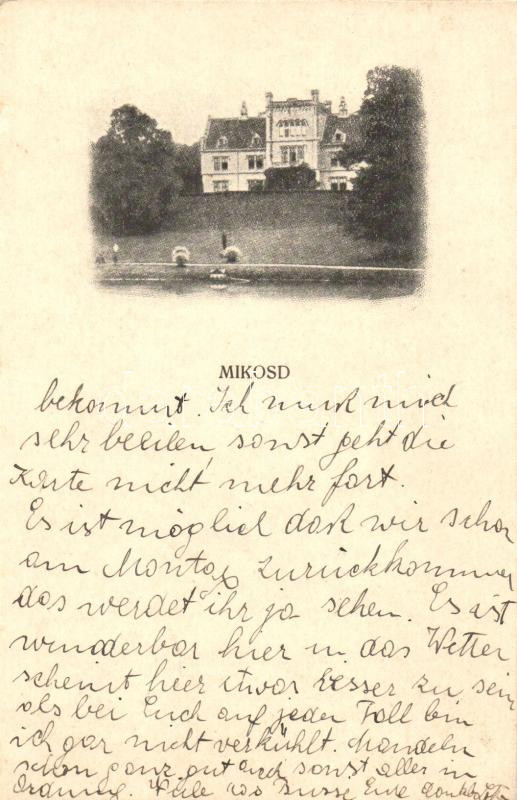 MIKOSD
bekommt. Ich muss mich
sehr beeilen, sonst geht die
Karte nicht mehr fort.
Es ist möglich dass wir schon
am Montag zurückkommen
das werdet ihr ja sehen. Es ist
wunderbar hier in das Wetter
scheint hier etwas besser zu sein
als bei Euch auf jeden Fall bin
ich gar nicht verkühlt. Mandeln
schon ganz gut und sonst alles in
Ordnung. Viele Busse Eure